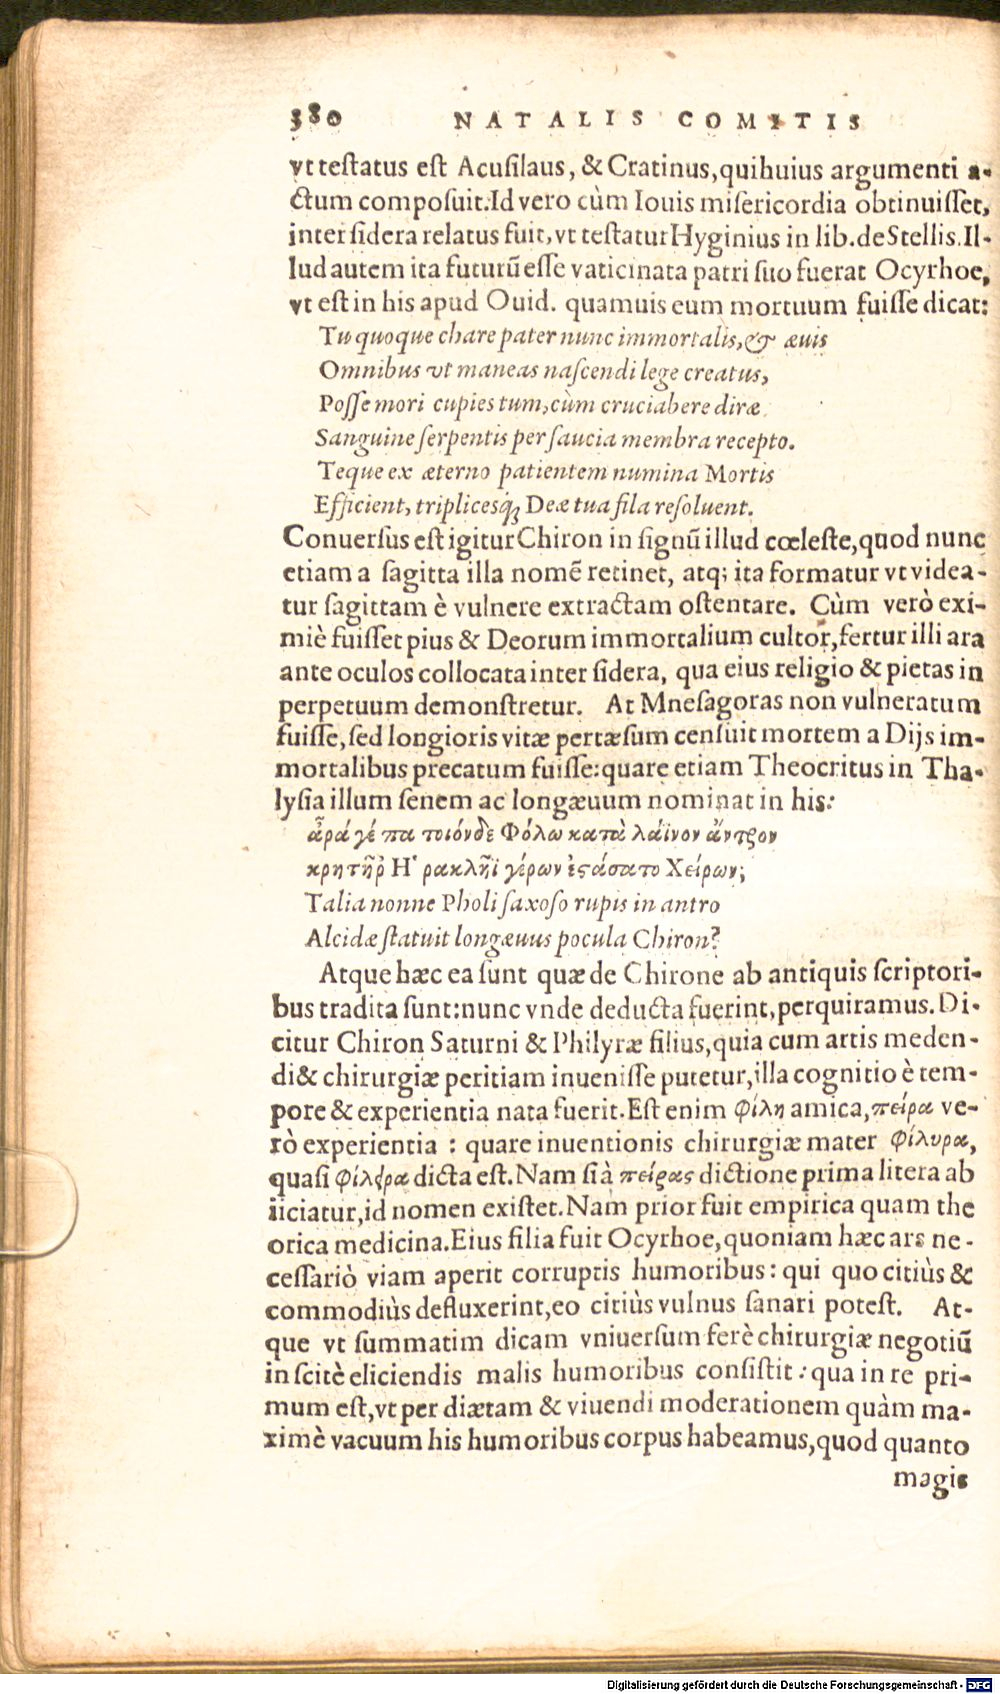 380 NATALIS COMITIS
vt testatus est Acusilaus, & Cratinus, qui huius argumenti a-
ctum composuit. Id vero cùm Iouis misericordia obtinuisset,
inter sidera relatus fuit, vt testatur Hyginius in lib. de Stellis. Il-
lud autem ita futurũ esse vaticinata patri suo fuerat Ocyrhoe,
vt est in his apud Ouid. quamuis eum mortuum fuisse dicat:
Tu quoque chare pater nunc immortalis, & æuis
Omnibus vt maneas nascendi lege creatus,
Posse mori cupies tum, cùm cruciabere diræ
Sanguine serpentis per saucia membra recepto.
Teque ex æterno patientem numina Mortis
Efficient, triplicesq́; Deæ tua fila resoluent.
Conuersus est igitur Chiron in signũ illud cœleste, quod nunc
etiam a sagitta illa nomẽ retinet, atq; ita formatur vt videa-
tur sagittam è vulnere extractam ostentare. Cùm verò exi-
miè fuisset pius & Deorum immortalium cultor, fertur illi ara
ante oculos collocata inter sidera, qua eius religio & pietas in
perpetuum demonstretur. At Mnesagoras non vulneratum
fuisse, sed longioris vitæ pertæsum censuit mortem a Dijs im-
mortalibus precatum fuisse: quare etiam Theocritus in Tha-
lysia illum senem ac longæuum nominat in his:
ἆρά γέ πα τοιόνδε Φόλω κατὰ λάϊνον ἄντρον
κρητῆρ Ἡρακλῆϊ γέρων ἐστάσατο Χείρων;
Talia nonne Pholi saxoso rupis in antro
Alcidæ statuit longæuus pocula Chiron?
Atque hæc ea sunt quæ de Chirone ab antiquis scriptori-
bus tradita sunt: nunc vnde deducta fuerint, perquiramus. Di-
citur Chiron Saturni & Philyræ filius, quia cum artis meden-
di & chirurgiæ peritiam inuenisse putetur, illa cognitio è tem-
pore & experientia nata fuerit. Est enim φίλη amica, πείρα ve-
rò experientia : quare inuentionis chirurgiæ mater φίλυρα,
quasi φίλερα dicta est. Nam si à πείρας dictione prima litera ab
iiciatur, id nomen existet. Nam prior fuit empirica quam the
orica medicina. Eius filia fuit Ocyrhoe, quoniam hæc ars ne-
cessariò viam aperit corruptis humoribus: qui quo citiùs &
commodiùs defluxerint, eo citiùs vulnus sanari potest. At-
que vt summatim dicam vniuersum ferè chirurgiæ negotiũ
in scitè eliciendis malis humoribus consistit: qua in re pri-
mum est, vt per diætam & viuendi moderationem quàm ma-
ximè vacuum his humoribus corpus habeamus, quod quanto
magis
Digitalisierung gefördert durch die Deutsche Forschungsgemeinschaft - DFG